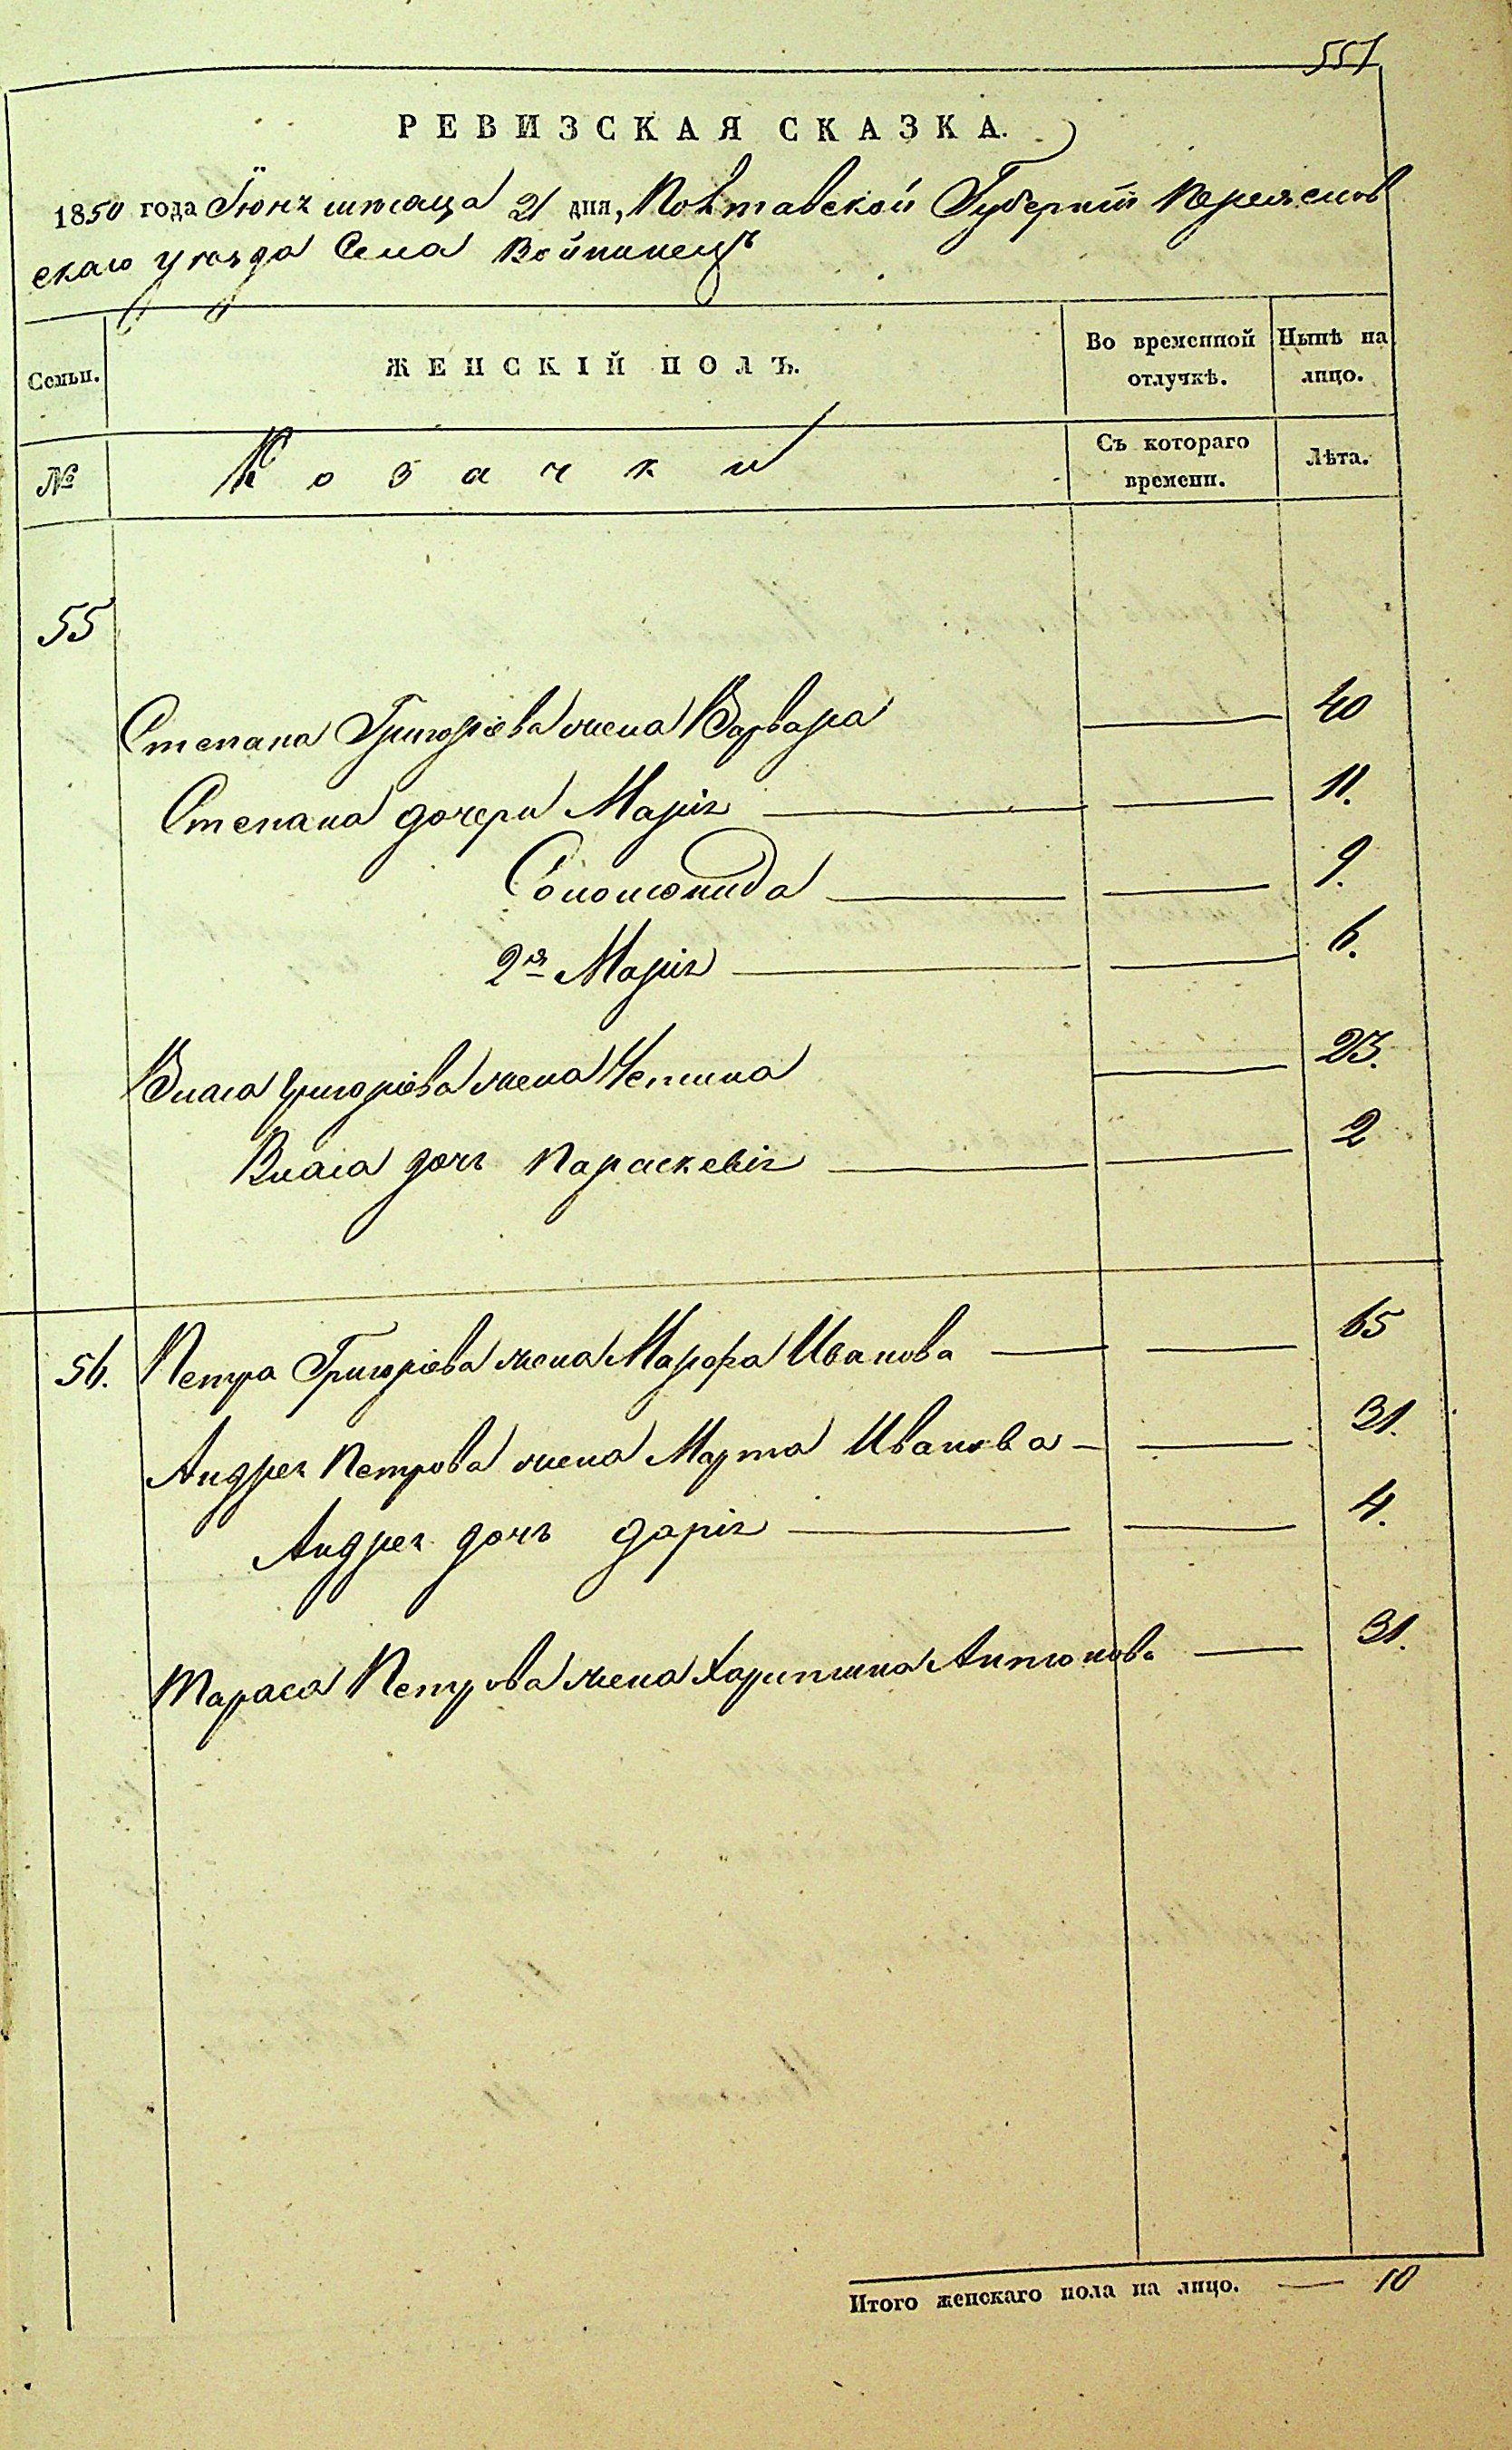 551
РЕВИЗСКАЯ СКАЗКА.
1850 года Іюня мѣсяца 21 дня, Полтавской Губерніи Переяслов
скаго уѣзда Села Войтовецъ
Семьи.
ЖЕНСКІЙ ПОЛЪ.
Во временной отлучкѣ.
Нынѣ на лицо.
№
Козачки
Съ котораго времени.
Лѣта.
55
Степана Григоріева жена Варвара — 40
Степана дочери Марія — — 11.
Соломонида — — 9.
2я Марія — — 6.
Власа Григоріева жена — 23.
Власа дочь Параскевія — — 2
56. Петра Григоріева жена Марфа Иванова — — 65
Андрея Петрова жена Марта Иванова — — 31.
Андрея дочь Дарія — — 4.
Тараса Петрова жена Харитина Антонова — 31.
Итого женскаго пола на лицо. — 10